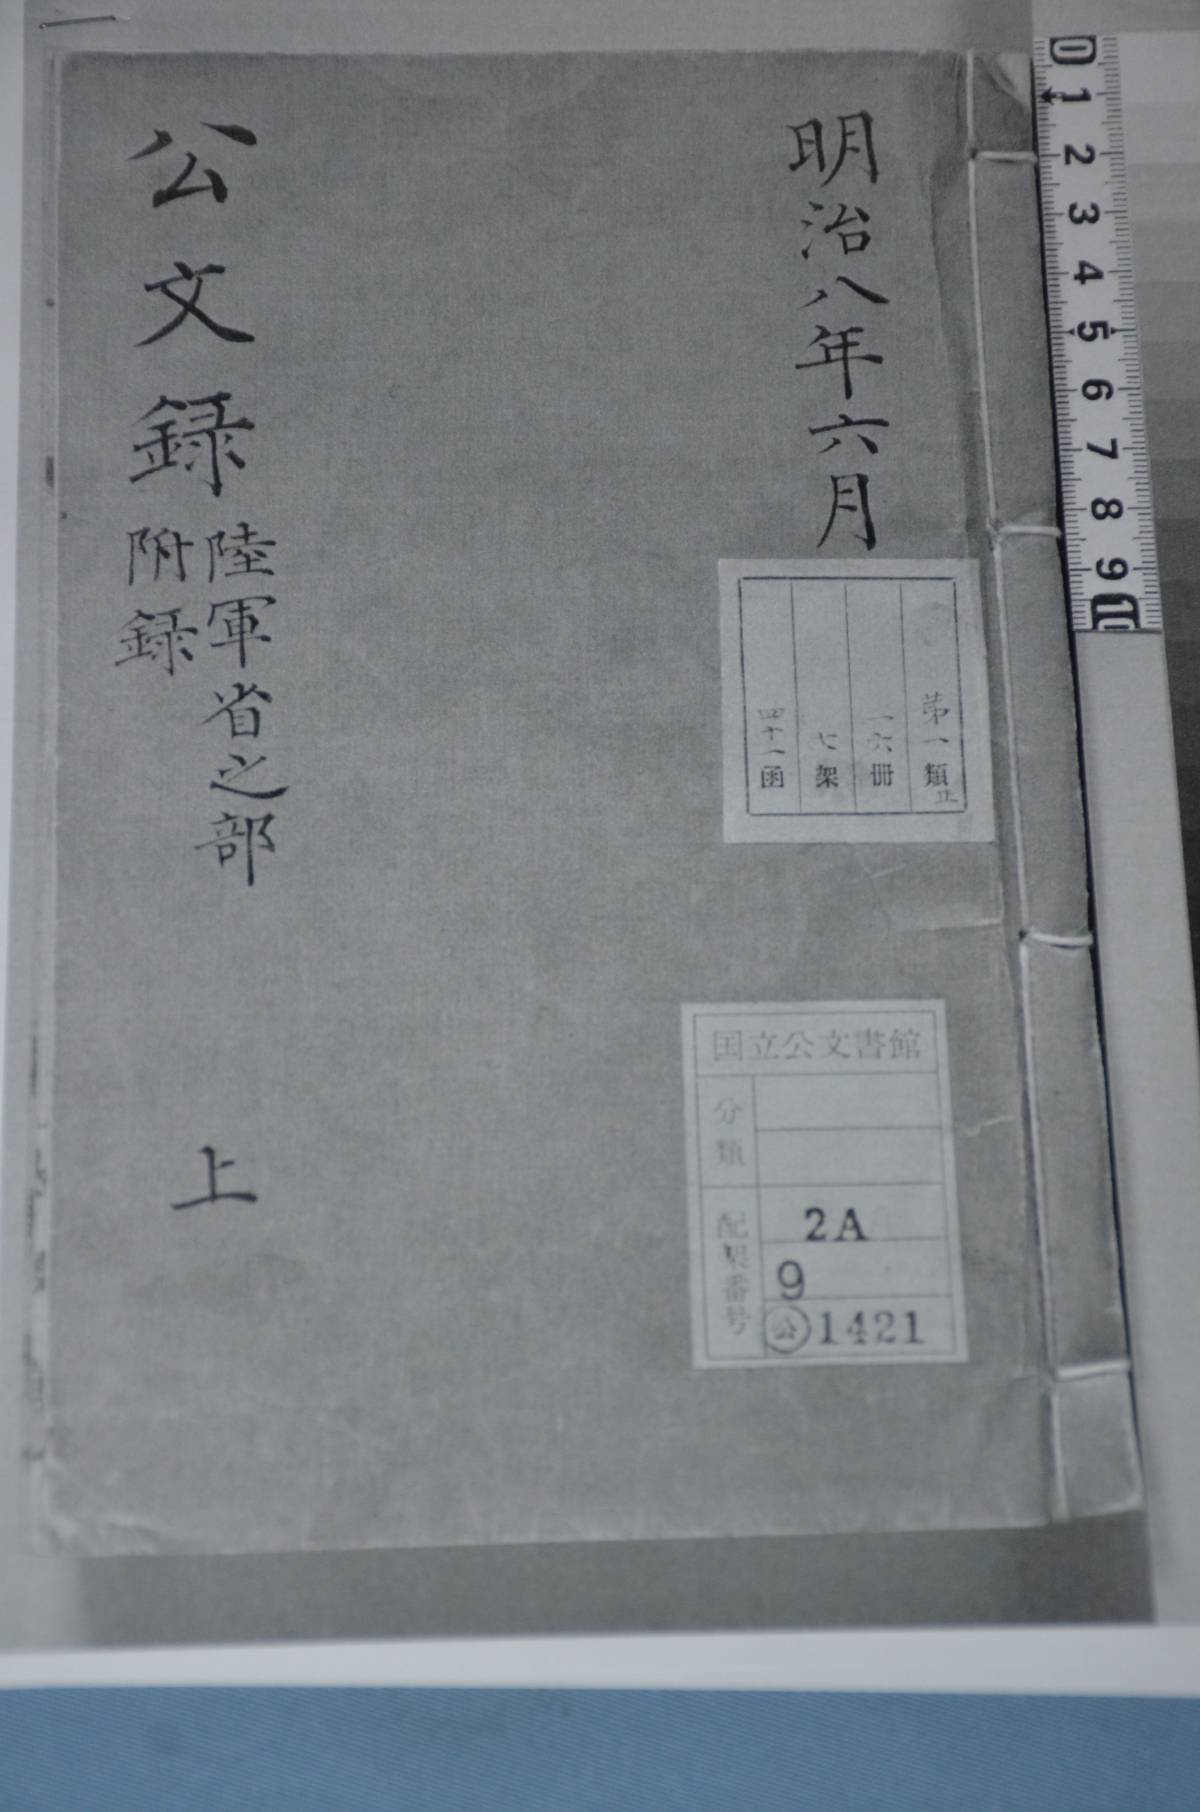 明治八年六月
公文録
陸軍省之部
附録
上
第一類正
一六冊
七架
四十一函
国立公文書館
分類
配架番号
2A
9
公1421
0 1 2 3 4 5 6 7 8 9 10